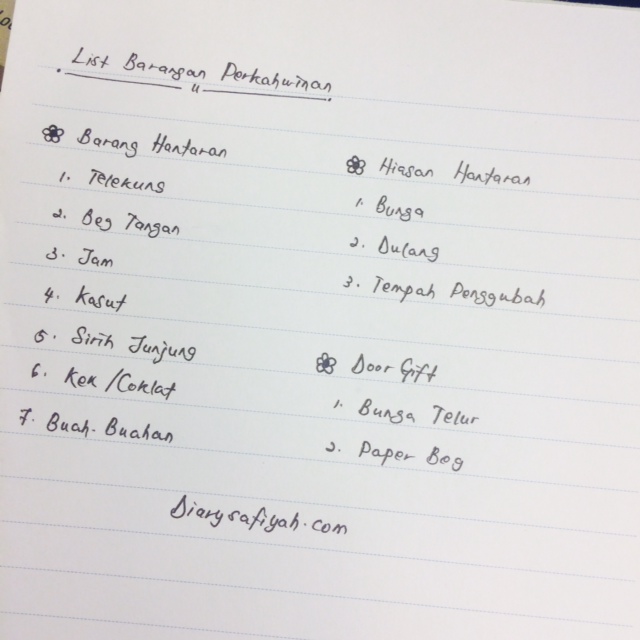 List Barangan Perkahwinan
Barang Hantaran
1. Telekung
2. Beg Tangan
3. Jam
4. Kasut
5. Sirih Junjung
6. Kek / Coklat
7. Buah-Buahan
Hiasan Hantaran
1. Bunga
2. Dulang
3. Tempah Penggubah
Door Gift
1. Bunga Telur
2. Paper Beg
Diarysafiyah.com